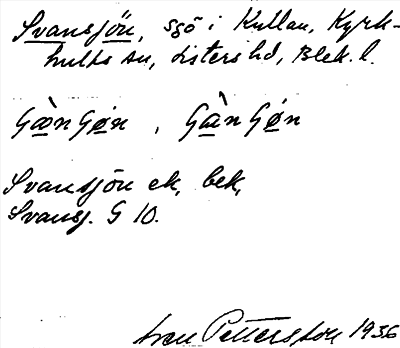 Svansjön, sjö i Kullan, Kyrk-
hults sn, Listers hd, Blek. l.
Gæ̀nGøn, Gàn Gøn
Svansjön ek, bek,
Svansj. G 10.
Pettersson 1936